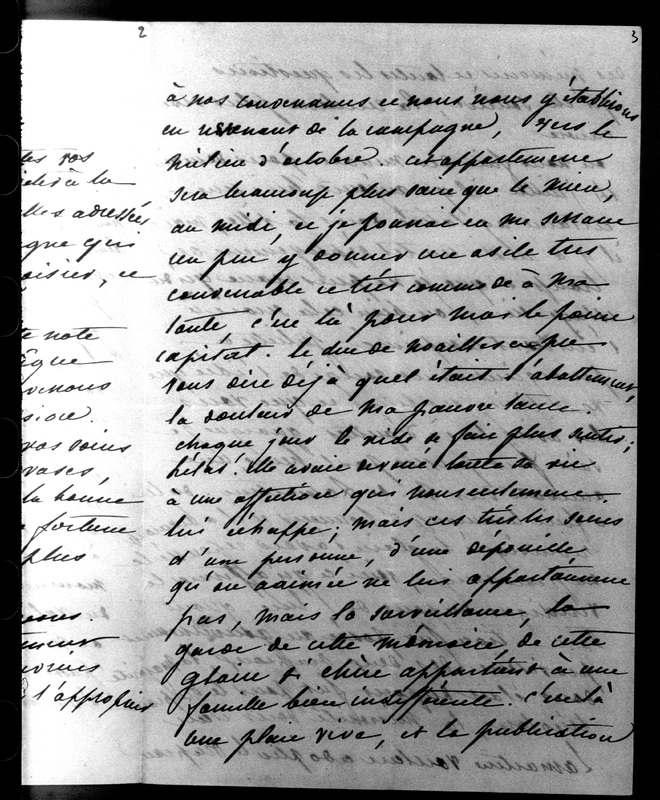 2
3
tes vos
à la
adressés
que qui
ce
te note
vos soins
la bonne
fortune
plus
à nos convenances et nous nous y établirons
en revenant de la campagne, vers le
milieu d'octobre cet appartement
sera beaucoup plus vaste que le mien,
au midi, et je pourrai en me serrant
un peu y donner un asile très
convenable et très commode à ma
tante, c'est là pour moi le point
capital. le duc de Noailles a pu
vous dire déjà quel était l'abattement,
la douleur de ma pauvre tante.
chaque jour le vide se fait plus sentir;
hélas! elle avait voué toute sa vie
à une affection qui non seulement
lui échappe; mais ces tristes soins
d'une personne, d'une dépouille
qu'on a aimée ne lui appartiennent
pas, mais la surveillance, la
garde de cette mémoire, de cette
gloire si chère appartient à une
famille bien indifférente. c'est là
une plaie vive, et la publication